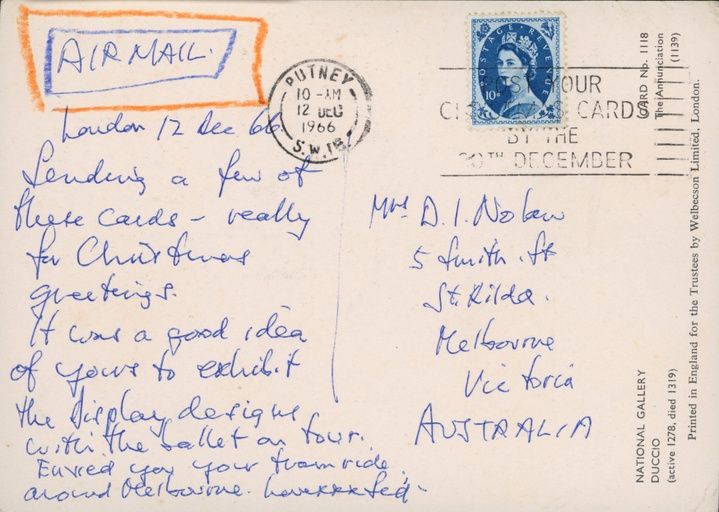 AIR MAIL.
PUTNEY
10-AM
12 DEC
1966
S.W.15
POSTAGE REVENUE
10d
POST YOUR
CHRISTMAS CARDS
BY THE
20TH DECEMBER
London 12 Dec 66.
Sending a few of
these cards - really
for Christmas
greetings.
It was a good idea
of yours to exhibit
the display designs
with the ballet on tour.
Envied you your tram ride
around Melbourne. Love xxx
Mrs D. I. Nolan
5 Smith. St
St. Kilda.
Melbourne
Victoria
AUSTRALIA
CARD No. 1118
The Annunciation
(1139)
NATIONAL GALLERY
DUCCIO
(active 1278, died 1319)
Printed in England for the Trustees by Welbecson Limited, London.